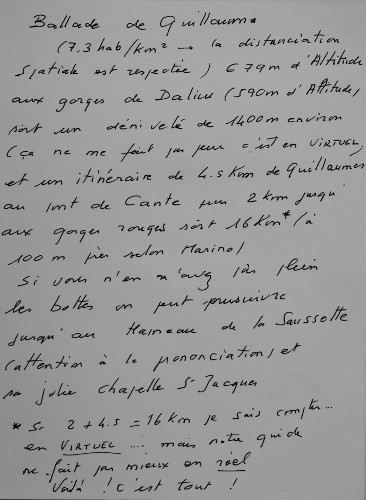 Ballade de Guillaumes
(7.3 hab/km² → la distanciation
spatiale est respectée) 679m d'Altitude
aux gorges de Daluis (590m d'Altitude)
soit un dénivelé de 1400m environ
(ça ne me fait pas peur c'est en VIRTUEL)
et un itinéraire de 4.5 Km de Guillaumes
au pont de Cante puis 2km jusqu'
aux gorges rouges soit 16Km* (à
100m près selon Marino)
Si vous n'en n'avez pas plein
les bottes on peut poursuivre
jusqu'au Hameau de la Saussette
(attention à la prononciation) et
sa jolie chapelle St Jacques
* Si 2 + 4.5 = 16 Km je sais compter...
en VIRTUEL .... mais notre guide
ne fait pas mieux en réel
Voilà ! C'est tout !